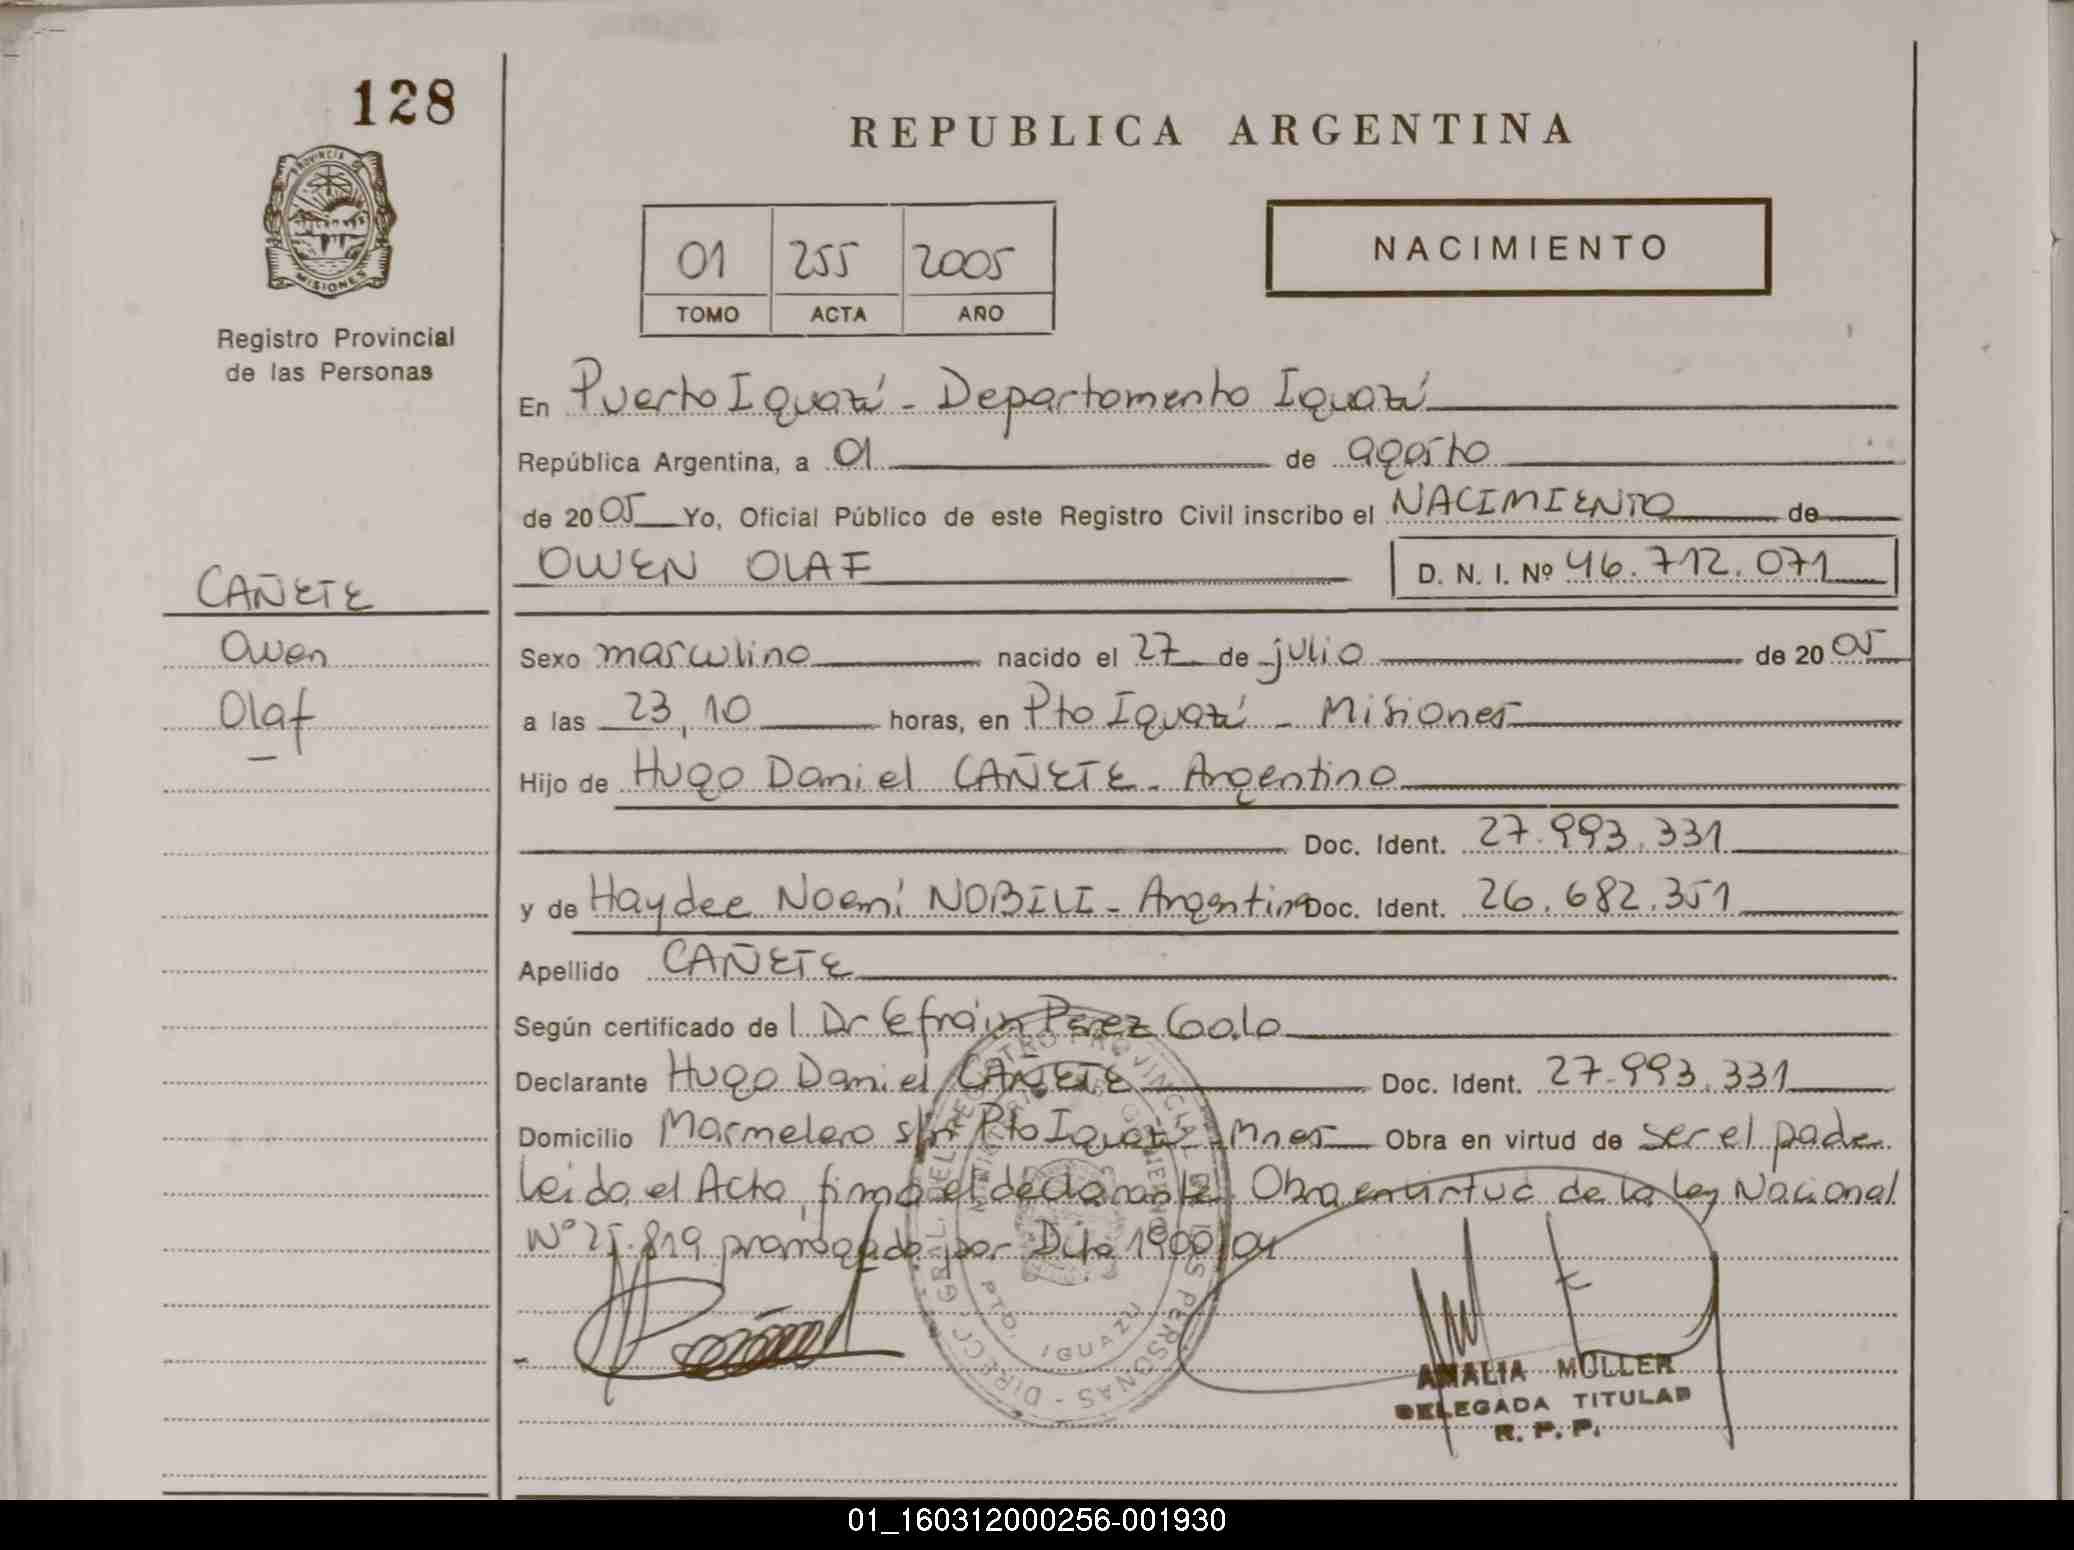 128
PROVINCIA DE
MISIONES
Registro Provincial
de las Personas
CAÑETE
Owen
Olaf
REPUBLICA ARGENTINA
01 255 2005
TOMO ACTA AÑO
NACIMIENTO
En Puerto Iguazú - Departamento Iguazú
República Argentina, a 01 de agosto
de 2005 Yo, Oficial Público de este Registro Civil inscribo el NACIMIENTO de
OWEN OLAF D. N. I. Nº 46.712.071
Sexo masculino nacido el 27 de julio de 2005
a las 23,10 horas, en Pto Iguazú - Misiones
Hijo de Hugo Daniel CAÑETE - Argentino
Doc. Ident. 27.993.331
y de Haydee Noemí NOBILI - Argentina Doc. Ident. 26.682.351
Apellido CAÑETE
Según certificado de l Dr Efraín Perez Galo
Declarante Hugo Daniel CAÑETE Doc. Ident. 27.993.331
Domicilio Marmelero s/n Pto Iguazú - Mnes Obra en virtud de ser el padre
leida el Acta, firma el declarante. Obra en virtud de la Ley Nacional
Nº 25.819 prorrogada por Dcto 1900/04
DIRECC. GRAL. DEL REGISTRO PROVINCIAL DE LAS PERSONAS
MINISTERIO DE GOBIERNO
PTO. IGUAZU
AMALIA MULLER
DELEGADA TITULAR
R. P. P.
01_160312000256-001930